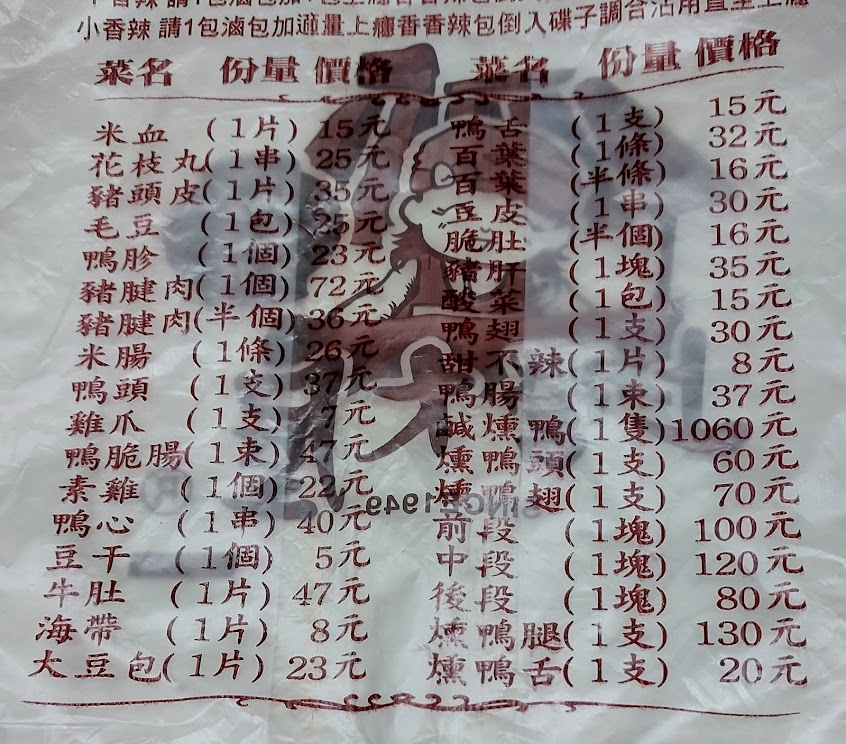 小香辣 請1包滷包加適量上癮香香辣包倒入碟子調合沾用直至上癮
菜名 份量 價格
米血 (1片) 15元
花枝丸(1串) 25元
豬頭皮(1片) 35元
毛豆 (1包) 25元
鴨胗 (1個) 23元
豬腱肉(1個) 72元
豬腱肉(半個) 36元
米腸 (1條) 26元
鴨頭 (1支) 37元
雞爪 (1支) 7元
鴨脆腸(1束) 47元
素雞 (1個) 22元
鴨心 (1串) 40元
豆干 (1個) 5元
牛肚 (1片) 47元
海帶 (1片) 8元
大豆包(1片) 23元
菜名 份量 價格
鴨舌 (1支) 15元
百葉 (1條) 32元
百葉 (半條) 16元
豆皮 (1串) 30元
脆肚 (半個) 16元
豬肝 (1塊) 35元
酸菜 (1包) 15元
鴨翅 (1支) 30元
甜不辣(1片) 8元
鴨腸 (1束) 37元
鹹燻鴨(1隻) 1060元
燻鴨頭(1支) 60元
燻鴨翅(1支) 70元
前段 (1塊) 100元
中段 (1塊) 120元
後段 (1塊) 80元
燻鴨腿(1支) 130元
燻鴨舌(1支) 20元
SINCE 1949